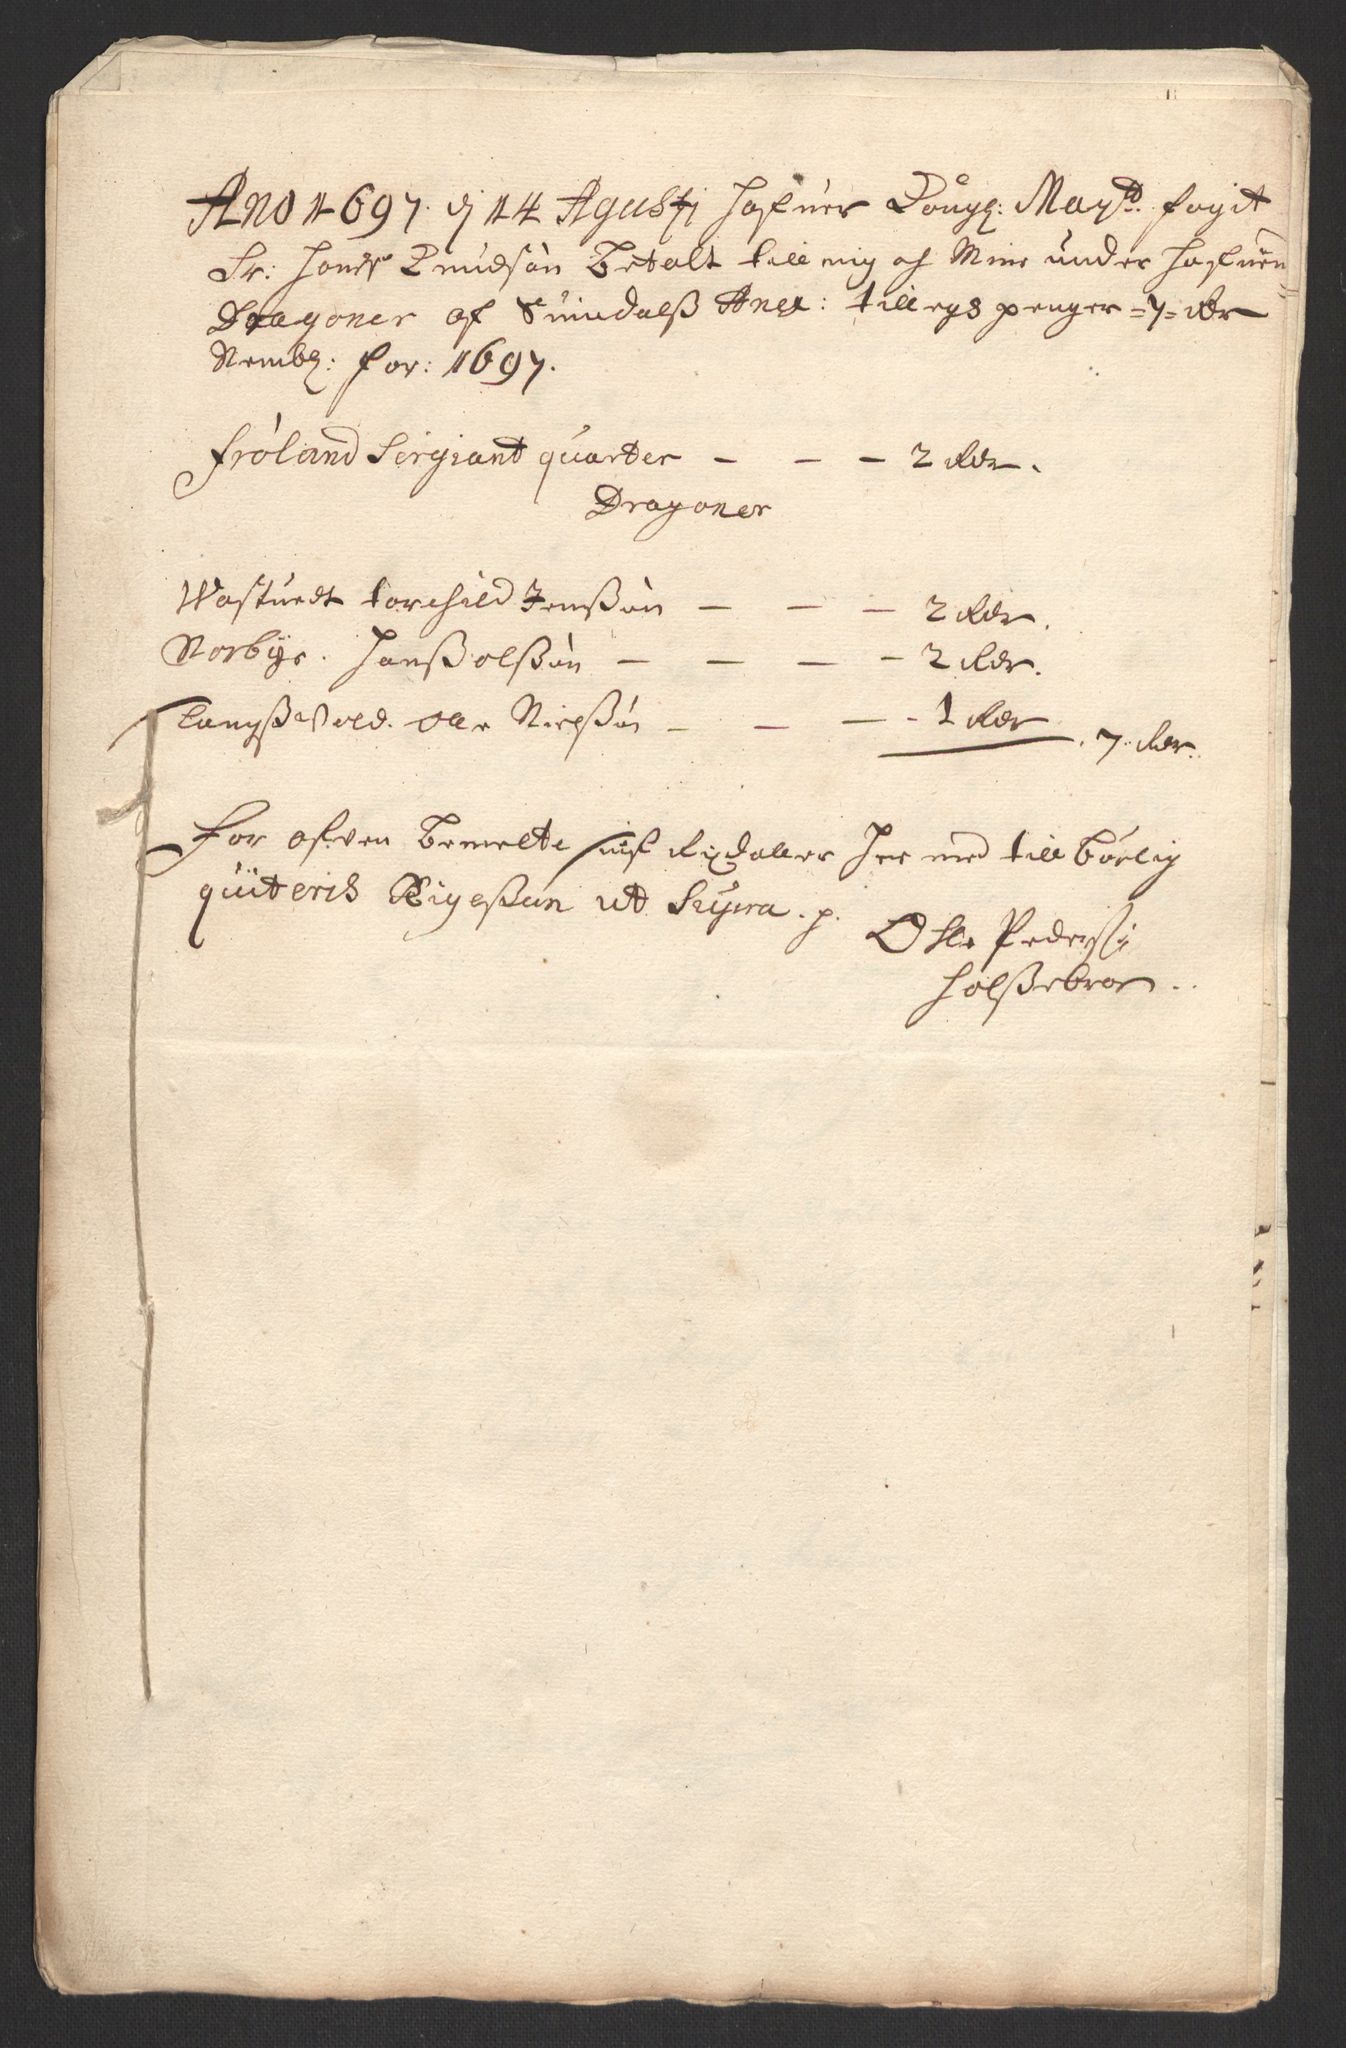 Ano 1697. dj 14 Agustj hafuer Kongl: Mayts. fogit
Sr: Hans Knudsøn Betalt till mig och Mine under hafuen
Dragoner af Suindalß Anex: tillegs penger =7= Rdr
Nembl: for: 1697.
Frøland Sergiant quarter — — — 2 Rdr.
Dragoner
Wastuedt torchild Jenßøn — — — 2 Rdr.
Norbye. Hanß olßøn — — — — 2 Rdr.
Langßwold. Olle Nielßøn — — — - 1 Rdr
7. Rdr.
For ofven Bemelte siuf Rixdaller Her med till børlig
quiteris Rigeßøn ut Supra. p.
Olle Pederß:
Holßebroe..